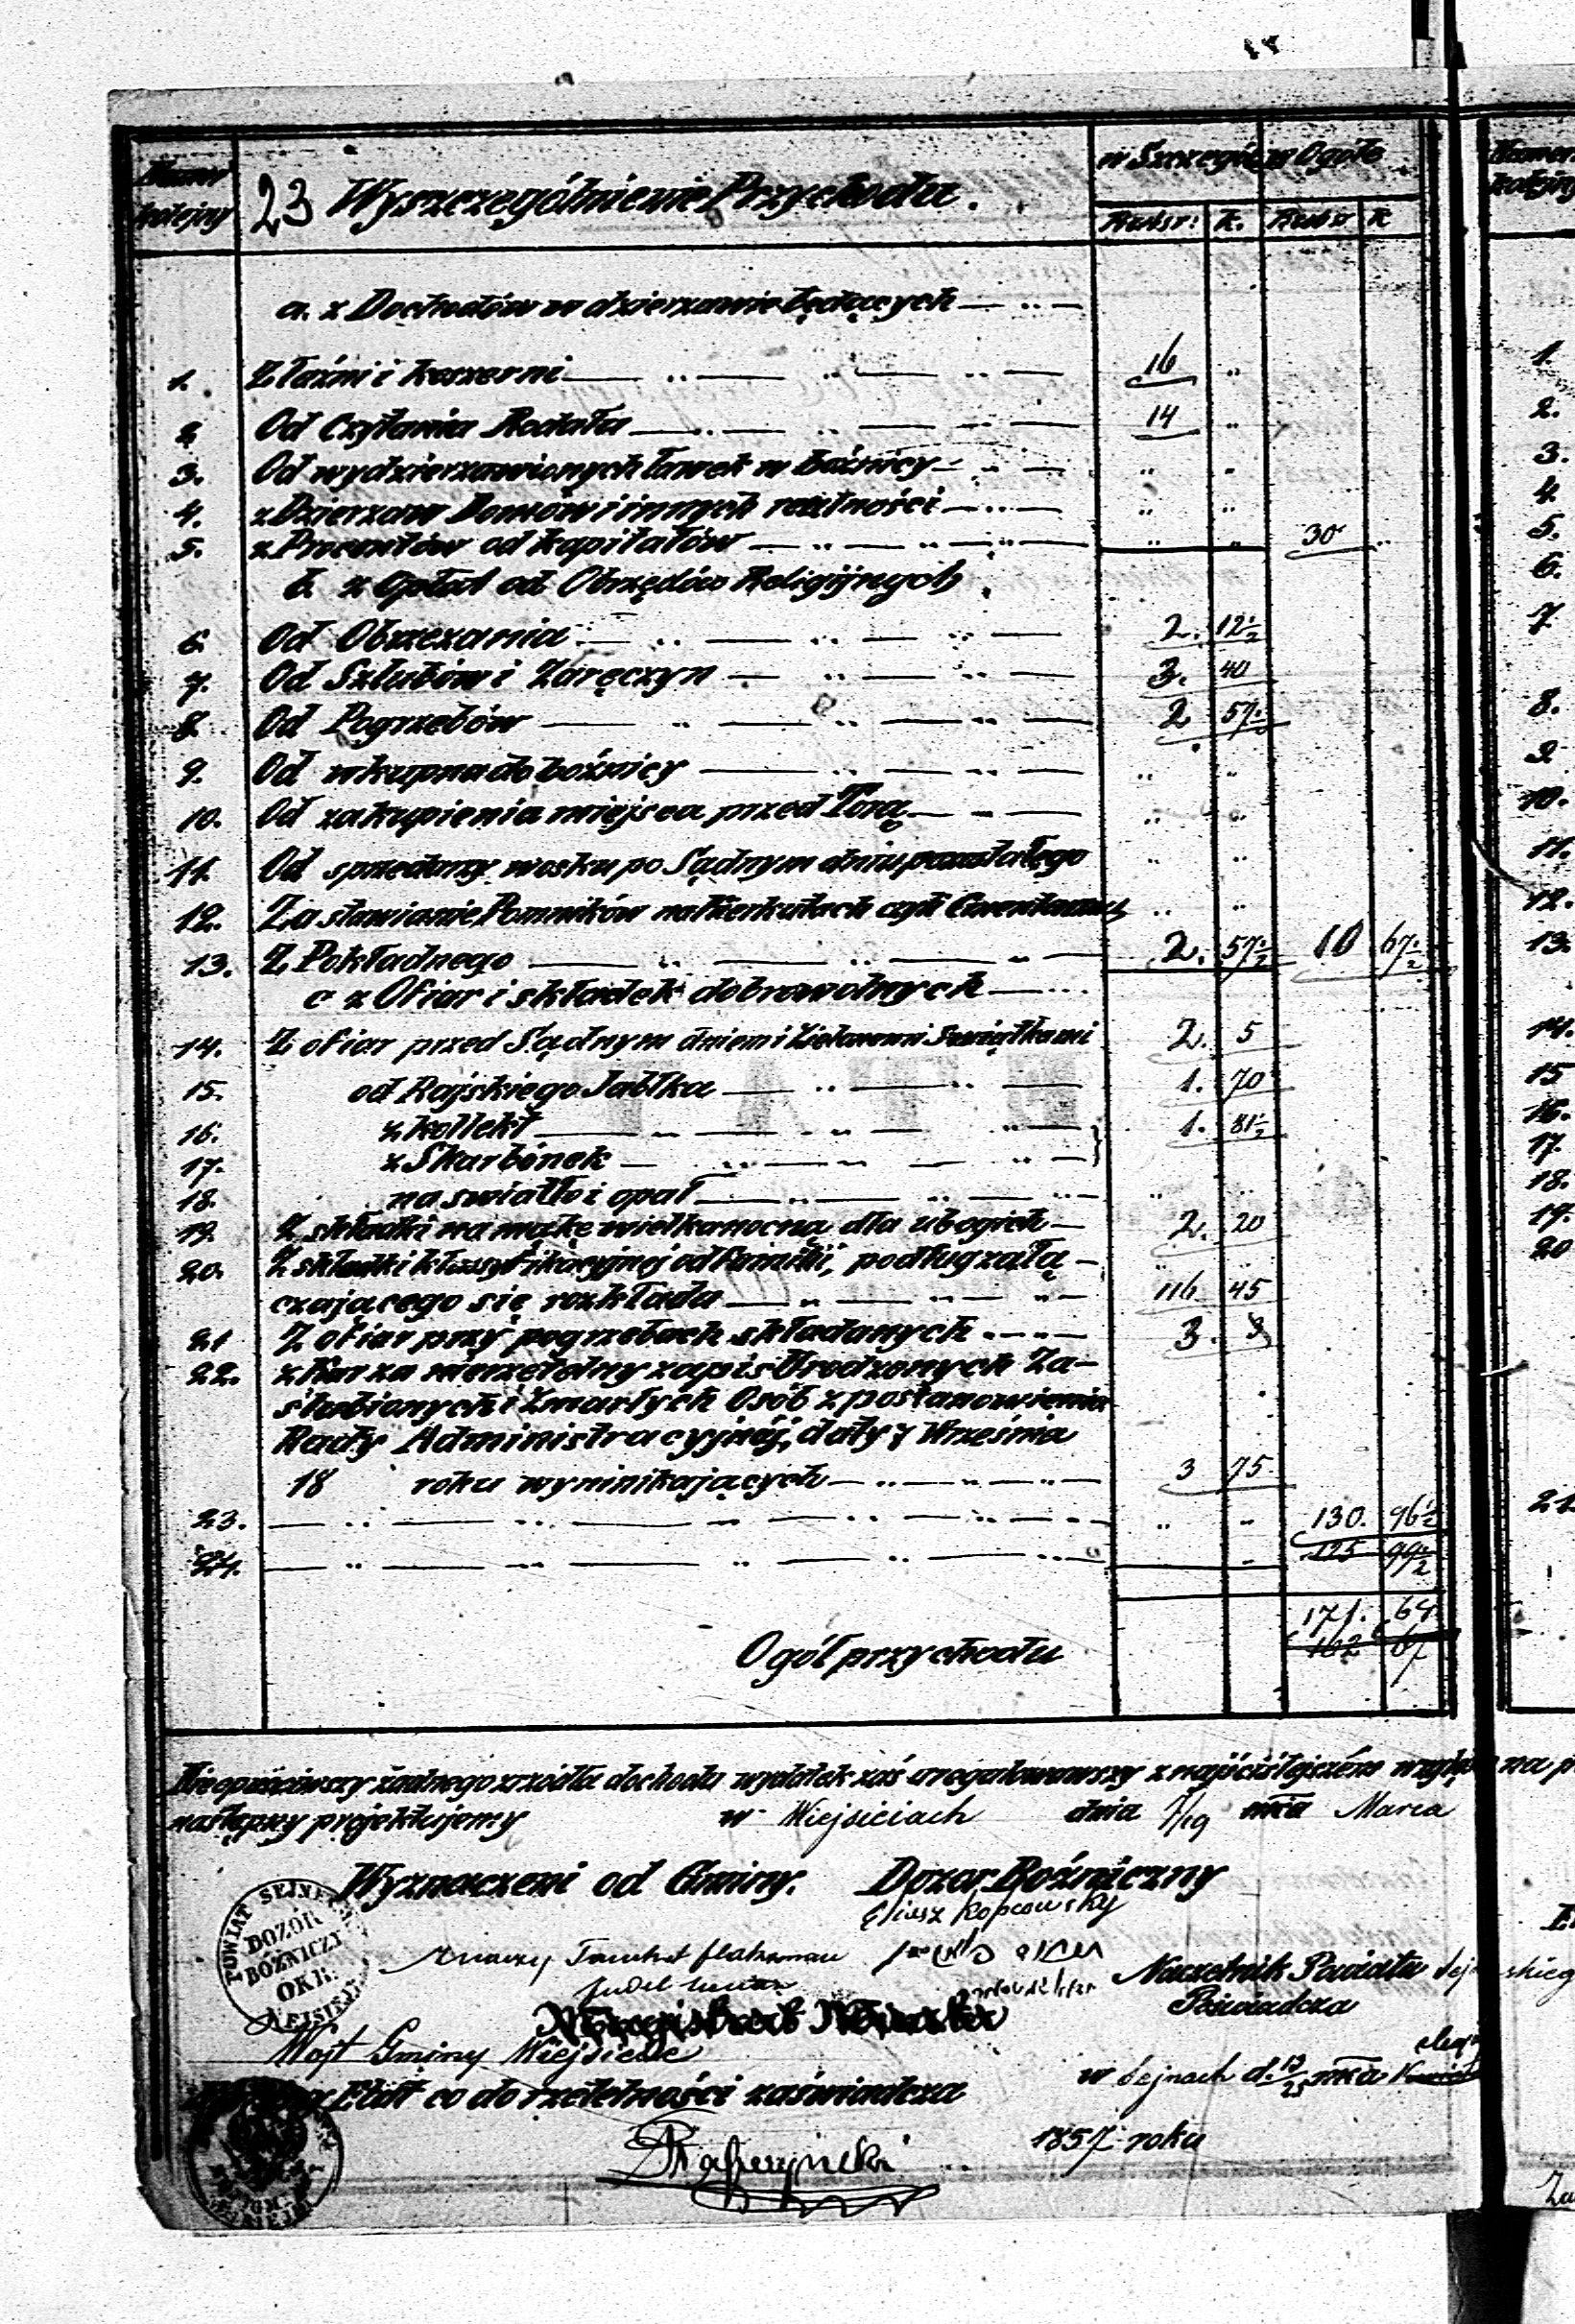 Numer kolejny
23 Wyszczególnienie Przychodu.
w Szczególe w Ogóle
Rubsr: k. Rubsr k
a. z Dochodów w dzierzawie będących
1. Z łaźni i koszerni 16 ..
2 Od Czytania Rodała 14 ..
3. Od wydzierzawionych ławek w bóźnicy .. ..
4. z Dzierzaw Domów i innych realności .. ..
5. z Procentów od kapitałów .. .. 30 ..
b. z Opłat od Obrzędów Religijnych
6 Od Obrzezania 2. 12½
7. Od Szlubów i Zaręczyn 3. 40
8 Od Pogrzebów 2 57½
9. Od wkupna do boźnicy .. ..
10. Od zakupienia miejsca przed Torą .. ..
11. Od sprzedarzy wosku po Sądnym dniu pozostałego .. ..
12. Za stawianie Pomników na Kierkutach czyli Cmentarzu .. ..
13. Z Pokładnego 2. 57½ 10 67½
c z Ofiar i składek dobrowolnych
14. Z ofiar przed Sądnym dniem i Zielonemi Swiątkami 2. 5
15. od Rajskiego Jabłka 1. 70
16. z kollekt 1. 81½
17. z Skarbónek
18. na swiatło i opał .. ..
19. Z składki na mąkę wielkanocną dla ubogich 2. 20
20. Z składki klassyfikacyjnej od familii, podług załą-
czającego się rozkładu 116 45
21 Z ofiar przy pogrzebach składanych 3.
22. z Kar za nierzetelny zapis Urodzonych Za-
slubionych i Zmarłych Osób z postanowienia
Rady Administracyjnéj, daty 7 Września
18 roku wyninikających 3 75
23. .. .. 130. 96½
24. 125 99½
171. 64
Ogół przychodu 162 67
Nie opuściwszy żadnego zrzódła dochodu wydatek zaś uregulowawszy z najściślejszém na
następny projektujemy w Wiejsieiach dnia 7/19 mca Marca
Wyznaczeni od Gminy. Dozor Bóźniczny
Eliasz Kopcowsky
POWIAT SEJNEŃSKI
DOZOR
BÓŻNICZY
OKR.
Naczelnik Powiatu
Poświadcza
Wojt Gminy Wiejsieie
Etat co do rzetelności zaświadcza
w Sejnach d. 13/25 mca
1857 roku